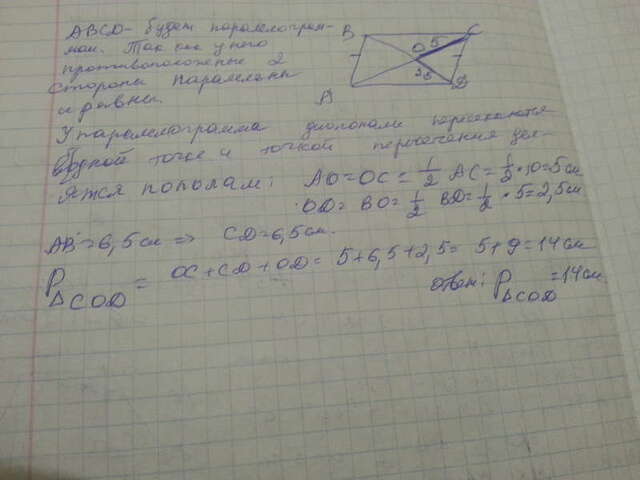 ABCD - будет паралелограм-
мом. Так как у него
противоположные 2
стороны паралельны
и равны.
B C
O 5
2,5
A D
У паралелограмма диагонали пересекаются
в одной точке и точкой пересечения дел-
ятся пополам; AO = OC = 1/2 AC = 1/2 · 10 = 5 см
OD = BO = 1/2 BD = 1/2 · 5 = 2,5 см
AB = 6,5 см => CD = 6,5 см.
P△COD = OC + CD + OD = 5 + 6,5 + 2,5 = 5 + 9 = 14 см
ответ: P△COD = 14 см.